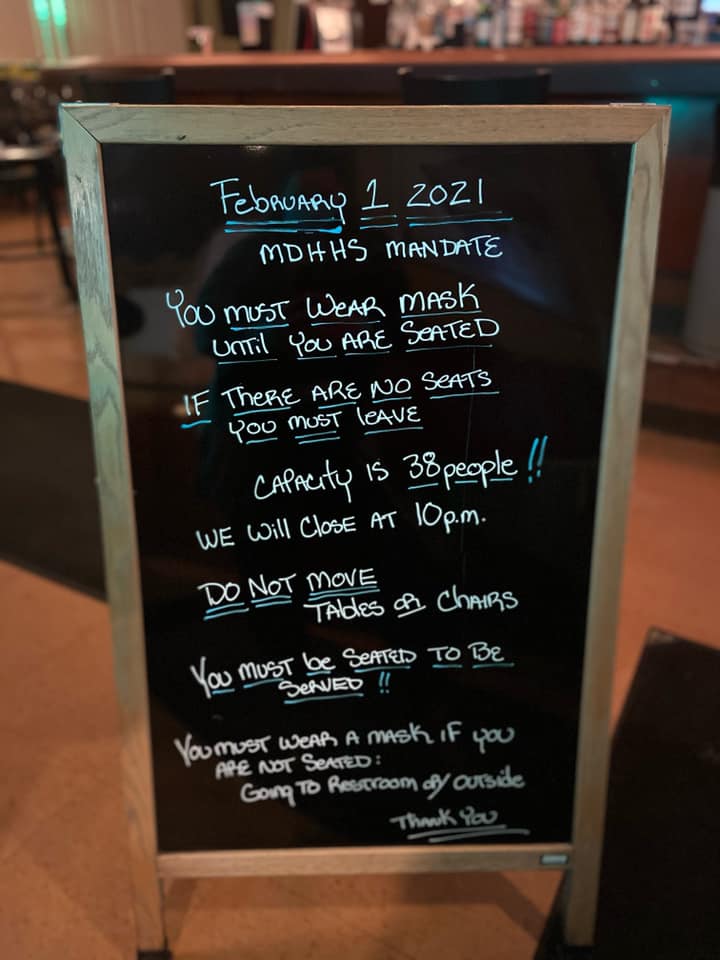 February 1 2021
MDHHS MANDATE
You must wear mask
until you are seated
If there are no seats
you must leave
Capacity is 38 people!!
We will close at 10p.m.
Do not move
tables or chairs
You must be seated to be
served!!
You must wear a mask if you
are not seated:
Going to restroom or outside
Thank you